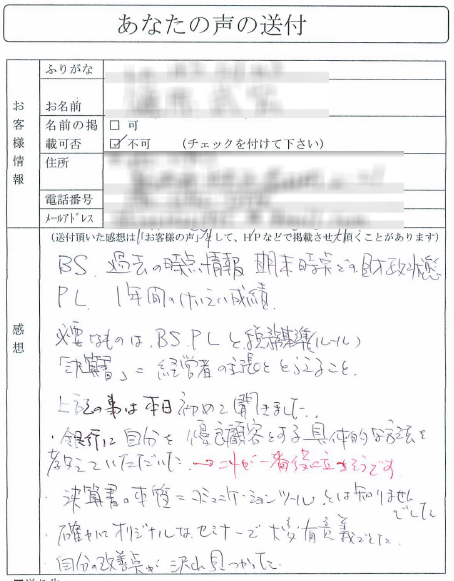 あなたの声の送付
お客様情報
ふりがな
お名前
名前の掲載可否
□ 可
☑ 不可 (チェックを付けて下さい)
住所
電話番号
メールアドレス
感想
(送付頂いた感想は「お客様の声」として、HPなどで掲載させて頂くことがあります)
BS. 過去の時点情報 期末時点での財政状態
PL. 1年間のけいえい成績.
必要なものは、BS.PLと 基準(ルール)
「決算書」= 経営者の主張ととらえること.
上記の事は本日初めて聞きました.
・銀行に自分を優良顧客とする具体的な方法を
教えていただいた. →これが一番役に立ちそうです
・決算書の本質=コミュニケーションツール とは知りません
でした
・確かにオリジナルなセミナーで大変有意義でした.
・自分の改善点が沢山見つかった.